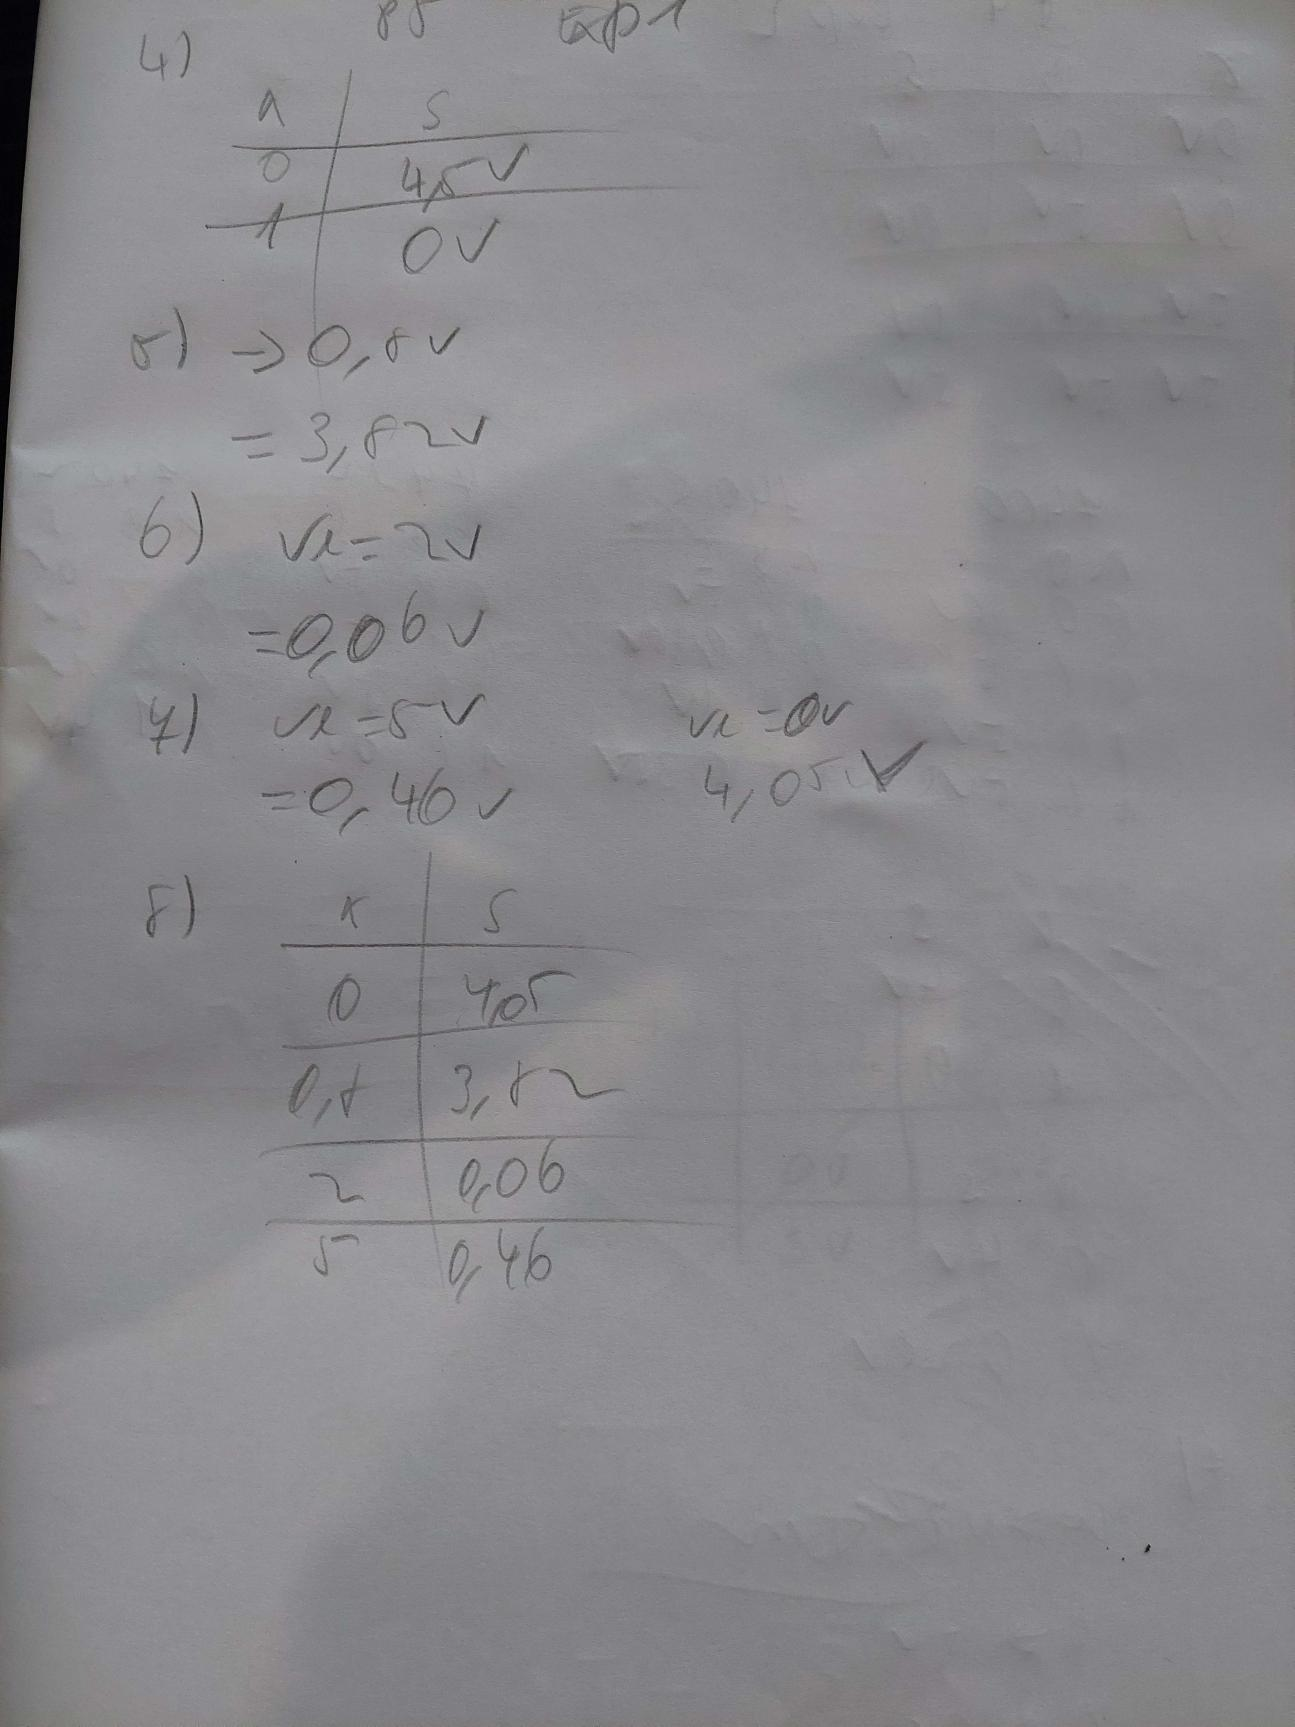 Exp 1
4)
A S
0 4,5V
1 0V
5) → 0,8V
= 3,82V
6) Vx = 2V
= 0,06V
7) Vx = 5V Vx = 0V
= 0,46V 4,05V
8)
x S
0 4,05
0,8 3,82
2 0,06
5 0,46